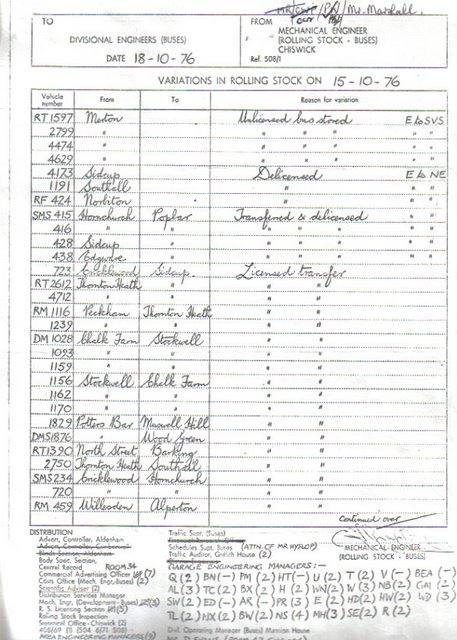 Mr. Marshall.
TO
DIVISIONAL ENGINEERS (BUSES)
DATE 18-10-76
FROM
MECHANICAL ENGINEER
(ROLLING STOCK - BUSES)
CHISWICK
Ref. 508/1
VARIATIONS IN ROLLING STOCK ON 15-10-76
Vehicle number From To Reason for variation
RT 1597 Merton Unlicensed bus stored E to SVS
2799 " " " " " "
4474 " " " " " "
4629 " " " " " "
4173 Sidcup Delicensed E to NE
1191 Southall " " "
RF 424 Norbiton " " "
SMS 415 Hornchurch Poplar Transferred & delicensed " "
416 " " " " " " "
428 Sidcup " " " " "
438 Edgware " " " " "
723 Cricklewood Sidcup. Licensed transfer
RT 2612 Thornton Heath " " "
4712 " " " "
RM 1116 Peckham Thornton Heath " "
1239 " " " "
DM 1028 Chalk Farm Stockwell " "
1093 " " " "
1159 " " " "
1156 Stockwell Chalk Farm " "
1162 " " " "
1170 " " " "
1829 Potters Bar Muswell Hill " "
DMS 1876 " Wood Green " "
RT 1390 North Street Barking " "
2750 Thornton Heath Southall " "
SMS 234 Cricklewood Hornchurch " "
720 " " " "
RM 459 Willesden Alperton " "
continued over
MECHANICAL ENGINEER
(ROLLING STOCK - BUSES)
DISTRIBUTION
Advert. Controller, Aldenham
Body Spec. Section,
Central Record ROOM 34
Commercial Advertising Officer (7)
Coats Office (Mech. Eng.-Buses) (2)
Scientific Adviser (2)
Distribution Services Manager
Mech. Engr. (Development - Buses) (3)
R. S. Licensing Section (3)
Rolling Stock Inspection
Statistical Office - Chiswick (2)
AREA ENGINEERING MANAGERS (9)
Traffic Supt. (Buses)
Schedules Supt. Buses (ATTN. OF MR HYSLOP)
Traffic Auditor, Griffith House (2)
GARAGE ENGINEERING MANAGERS:-
Q (2) BN (-) PM (2) HT (-) U (2) T (2) V (-) BEA (-)
AL (3) TC (2) BX (2) H (2) WN (2) W (3) NB (2) GM (2)
SW (2) ED (-) AR (-) PR (3) E (2) HD (2) HW (2) WD (3)
TL (2) NX (2) BW (2) NS (4) MH (3) SE (2) R (2)